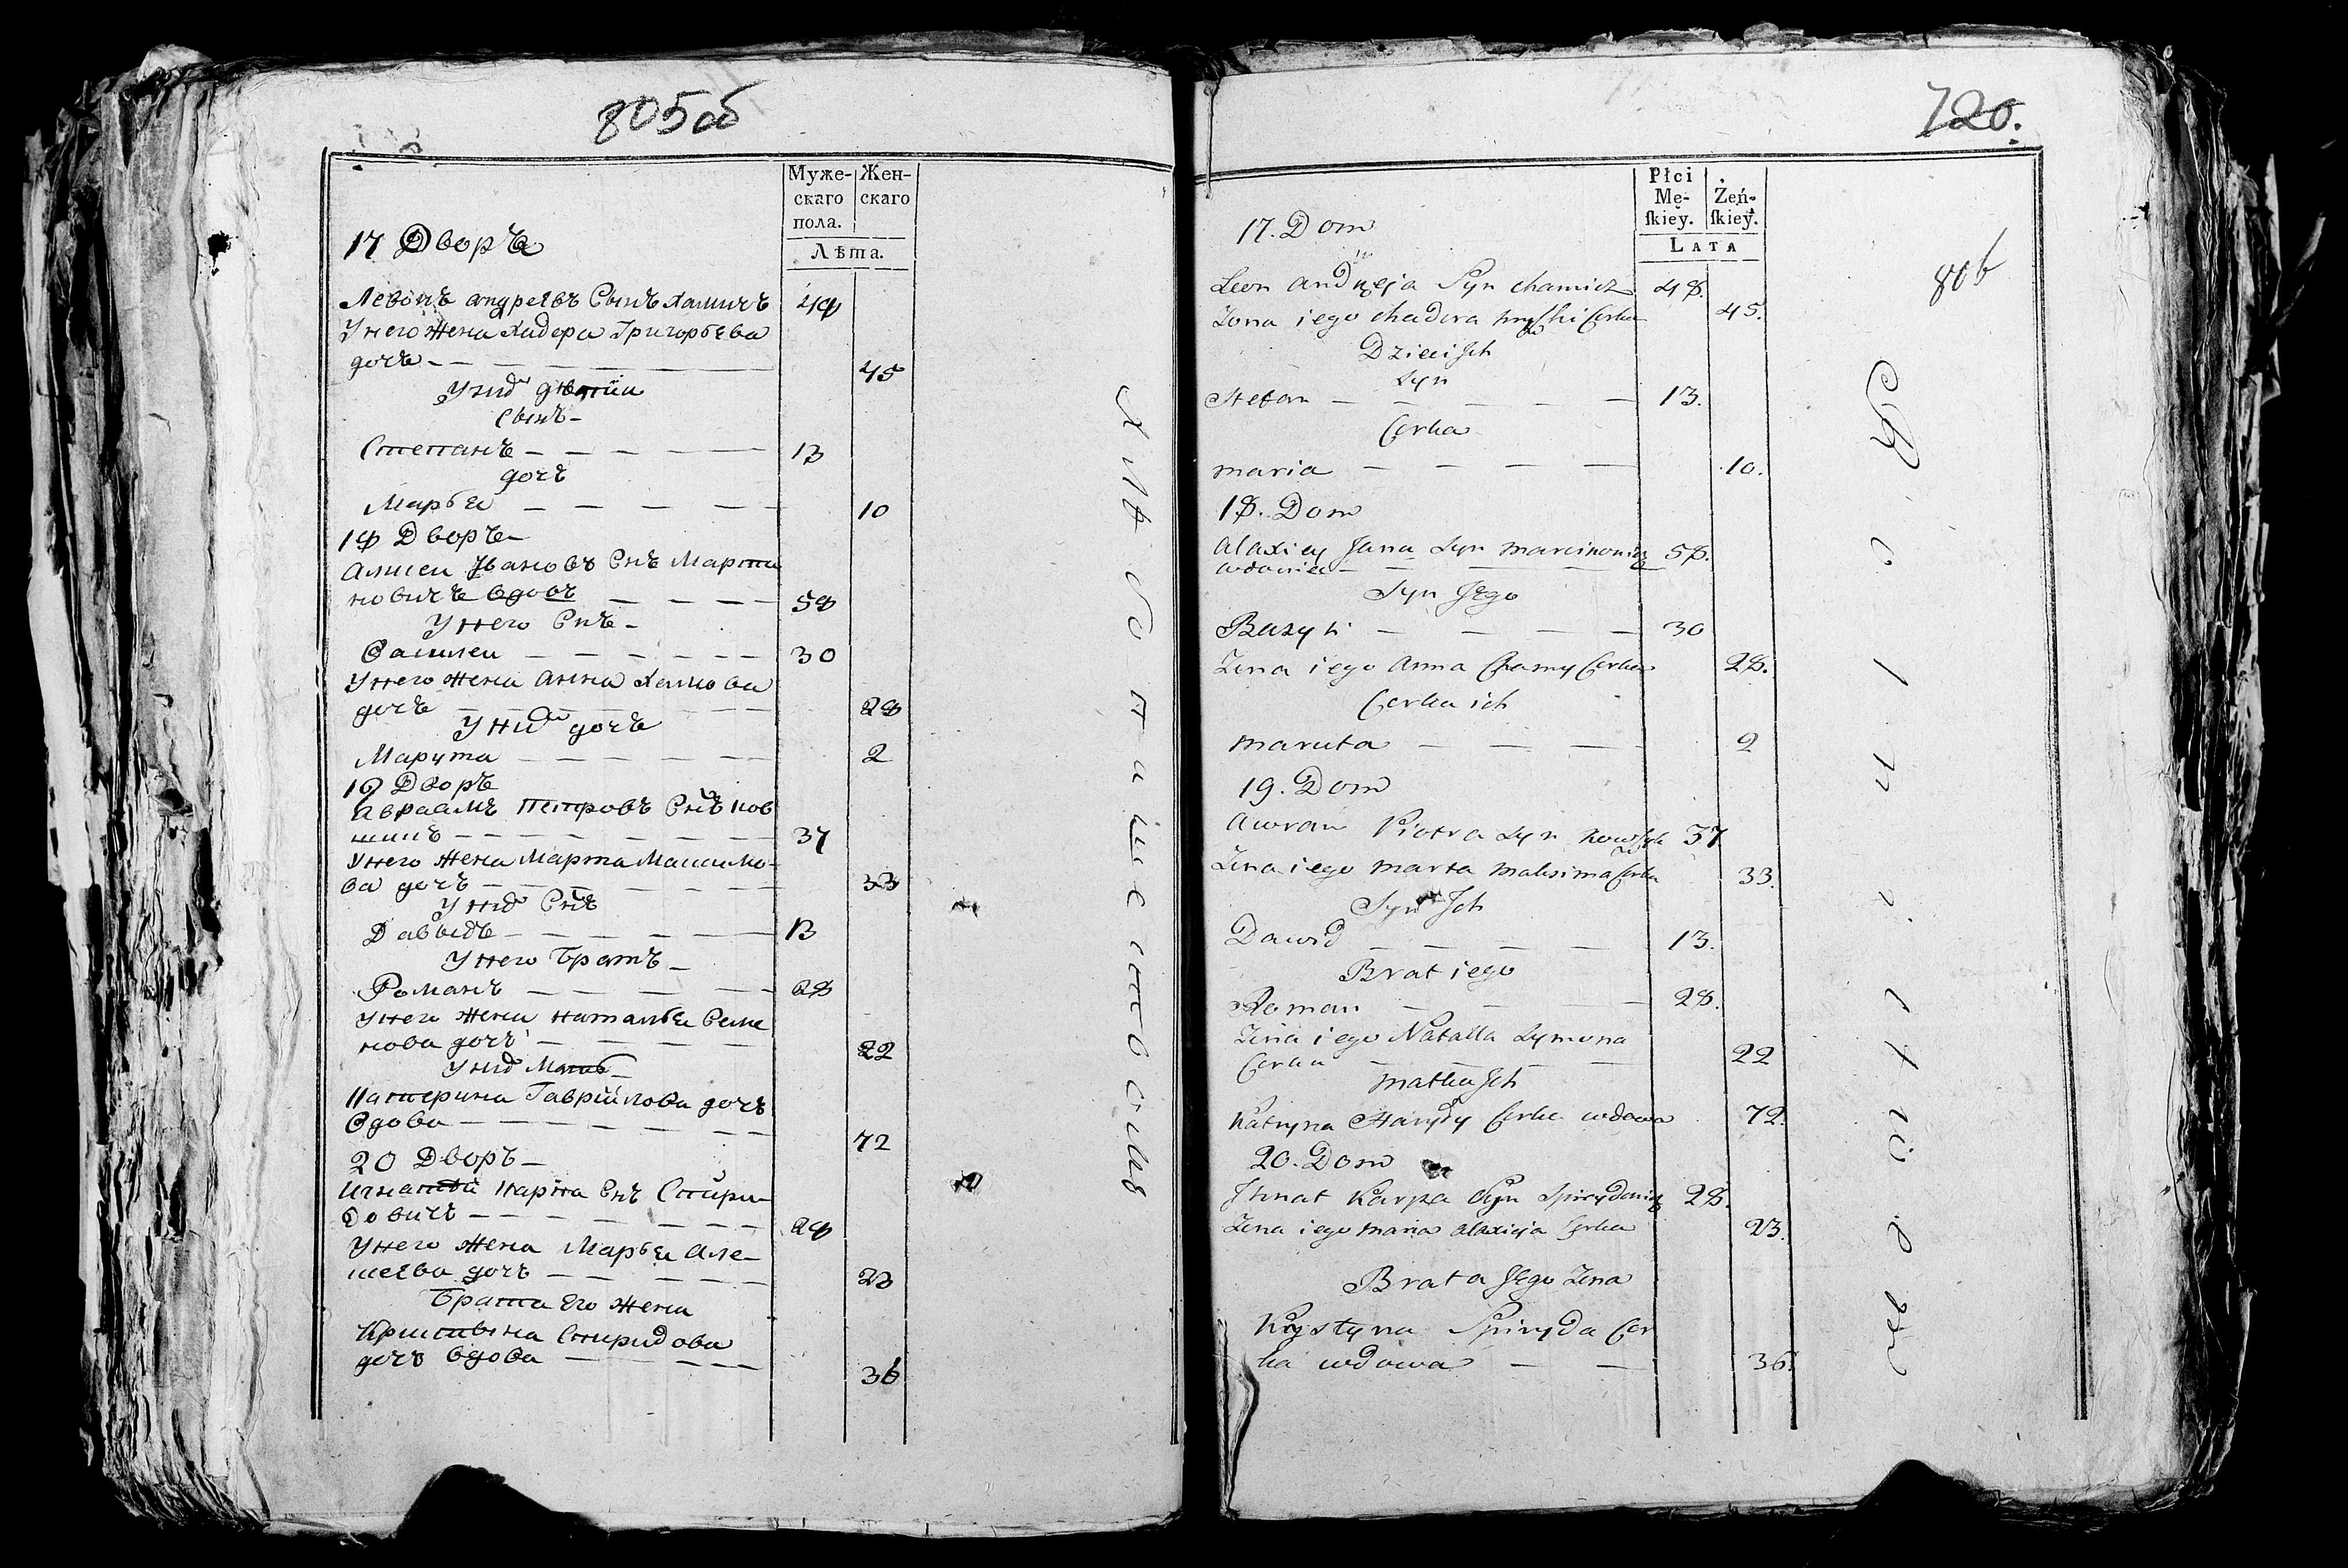 805об
Муже-
скаго
пола.
Жен-
скаго
Лѣта.
17 Дворъ
Левонъ андреевъ Сынъ Хамичъ 48
У него жена Хадора Григорьева
дочь 45
У них дѣтей
Сынъ
Степанъ 13
дочь
Марья 10
18 Дворъ
Алисеи Ивановъ Снъ Марти
новичъ вдовъ 58
У него Снъ
Василеи 30
У него жена Анна Хамова
дочь 28
У них дочь
Марута 2
19 Дворъ
Авраамъ Петровъ Снъ Ков
шикъ 37
У него жена Марта Максимо-
ва дочь 33
У них Снъ
Давыдъ 13
У него Братъ
Романъ 28
У него жена Наталья Семе
нова дочь 22
У них Мать
Катерина Гаврилова дочь
Вдова 72
20 Дворъ
Игнатей Карпа Снъ Спири-
довичъ 28
У него жена Марья Але-
шева дочь 23
Брата Его жена
Кристына Спиридова
дочь вдова 36
720.
806
Płci
Mę-
ſkiey.
Żeń-
ſkiey.
Lata
17. Dom
Leon Andrzeja Syn Chamicz 48.
Zona iego Chadora Hryſzki Corka 45.
Dzieci Jch
Syn
Stefan 13.
Corka
Maria 10.
18. Dom
Alaxiey Jana Syn Marcinowicz 58.
wdowiec
Syn Jego
Bazyli 30
Zona iego Anna Chamy Corka 28.
Corka ich
Maruta 2
19. Dom
Awram Piotra Syn Kowſzyk 37
Zona iego Marta Maksima Corka 33.
Syn Jch
Dawid 13.
Brat iego
Roman 28.
Zona iego Natalla Symona
Corka 22
Matka Jch
Katryna Hawryły Corka wdowa 72.
20. Dom
Jhnat Karpa Syn Spirydowicz 28.
Zona iego Maria Alaxieja Corka 23.
Brata Jego Zona
Krystyna Spiryda Cor
ka wdowa 36.